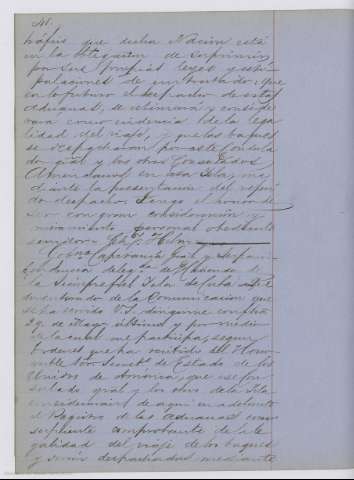 41.
tráfico que dicha Nación está
en la obligación de suprimir
por sus propias leyes y esti-
pulaciones de un tratado; que
en lo futuro el despacho de estas
Aduanas, se estimará y conside-
rará como evidencia de la lega-
lidad del viaje, y que los buques
se despacharán por este Consula-
do gral y los otros Consulados
Americanos en esta Isla, me-
diante la presentación del referi-
do despacho. Tengo el honor de
ser con gran consideración y
miramiento personal obediente
servidor
Capitanía Gral y Superin-
tendencia delegda de Hacienda de
la Siempre fiel Isla de Cuba
enterado de la Comunicación que
se ha servido V.S. dirigirme con fha
29 de Mayo último y por medio
de la cual me participa, segun
ordenes que ha recibido del Hono-
rable Sor Secreto de Estado de los
Unidos de America, que ese Con-
sulado gral y los otros de la Isla
considerarán de aqui en adelante
el Registro de las Aduanas como
suficiente comprobante de la le-
galidad del viaje de los buques
y serán despachados mediante